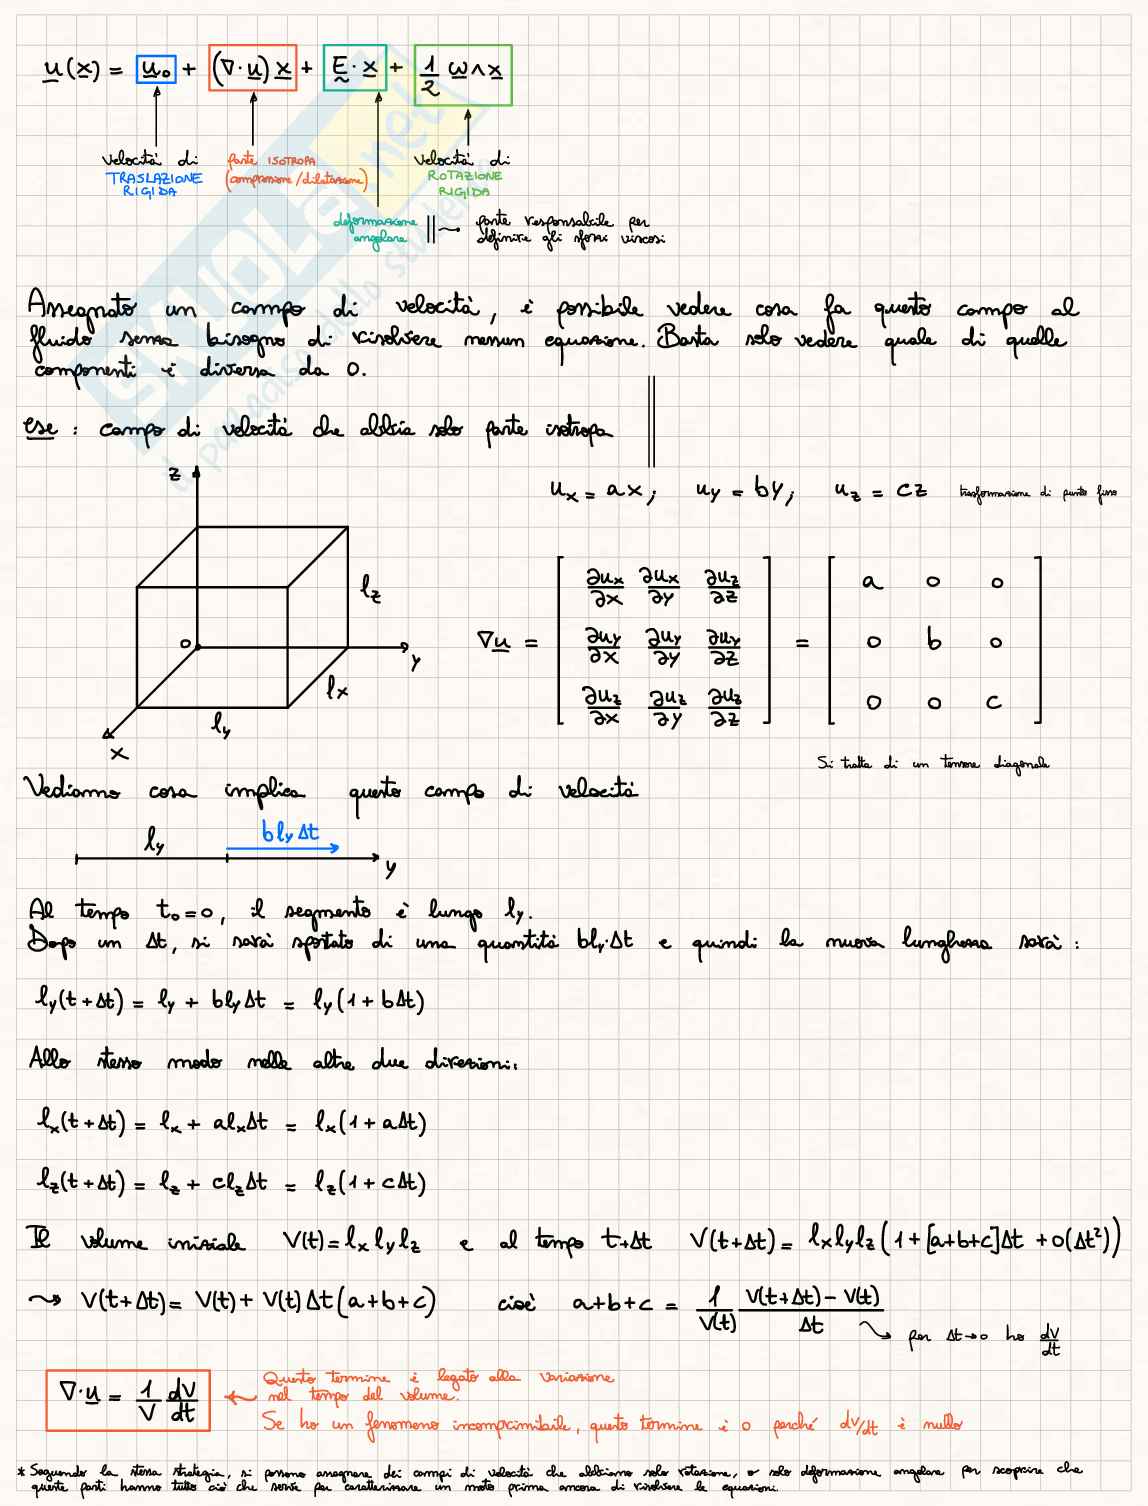 u(x) = u₀ + (∇·u) x + E · x + 1/2 ω∧x
velocità di TRASLAZIONE RIGIDA
parte ISOTROPA (compressione/dilatazione)
velocità di ROTAZIONE RIGIDA
deformazione angolare
parte responsabile per definire gli sforzi viscosi
Assegnato un campo di velocità, è possibile vedere cosa fa questo campo al
fluido senza bisogno di risolvere nessun equazione. Basta solo vedere quale di quelle
componenti è diversa da 0.
ese : campo di velocità che abbia solo parte isotropa
u_x = ax; u_y = by; u_z = cz trasformazione di punto fisso
z
l_z
o
y
l_x
l_y
x
∇u = [ ∂u_x/∂x ∂u_x/∂y ∂u_z/∂z ] = [ a 0 0 ]
[ ∂u_y/∂x ∂u_y/∂y ∂u_y/∂z ] [ 0 b 0 ]
[ ∂u_z/∂x ∂u_z/∂y ∂u_z/∂z ] [ 0 0 c ]
Si tratta di un tensore diagonale
Vediamo cosa implica questo campo di velocità
l_y
b l_y Δt
y
Al tempo t₀=0, il segmento è lungo l_y.
Dopo un Δt, si sarà spostato di una quantità bl_y·Δt e quindi la nuova lunghezza sarà :
l_y(t+Δt) = l_y + bl_yΔt = l_y(1+bΔt)
Allo stesso modo nelle altre due direzioni:
l_x(t+Δt) = l_x + al_xΔt = l_x(1+aΔt)
l_z(t+Δt) = l_z + cl_zΔt = l_z(1+cΔt)
Il volume iniziale V(t)=l_x l_y l_z e al tempo t+Δt V(t+Δt) = l_x l_y l_z(1+[a+b+c]Δt + o(Δt²))
⤳ V(t+Δt)= V(t)+ V(t)Δt(a+b+c) cioè a+b+c = 1/V(t) V(t+Δt) - V(t)/Δt
per Δt→0 ho dV/dt
∇·u = 1/V dV/dt
Questo termine è legato alla variazione
nel tempo del volume.
Se ho un fenomeno incomprimibile, questo termine è 0 perché dV/dt è nullo
* Seguendo la stessa strategia, si possono assegnare dei campi di velocità che abbiamo solo rotazione, o solo deformazione angolare per scoprire che
queste parti hanno tutto ciò che serve per caratterizzare un moto prima ancora di risolvere le equazioni.